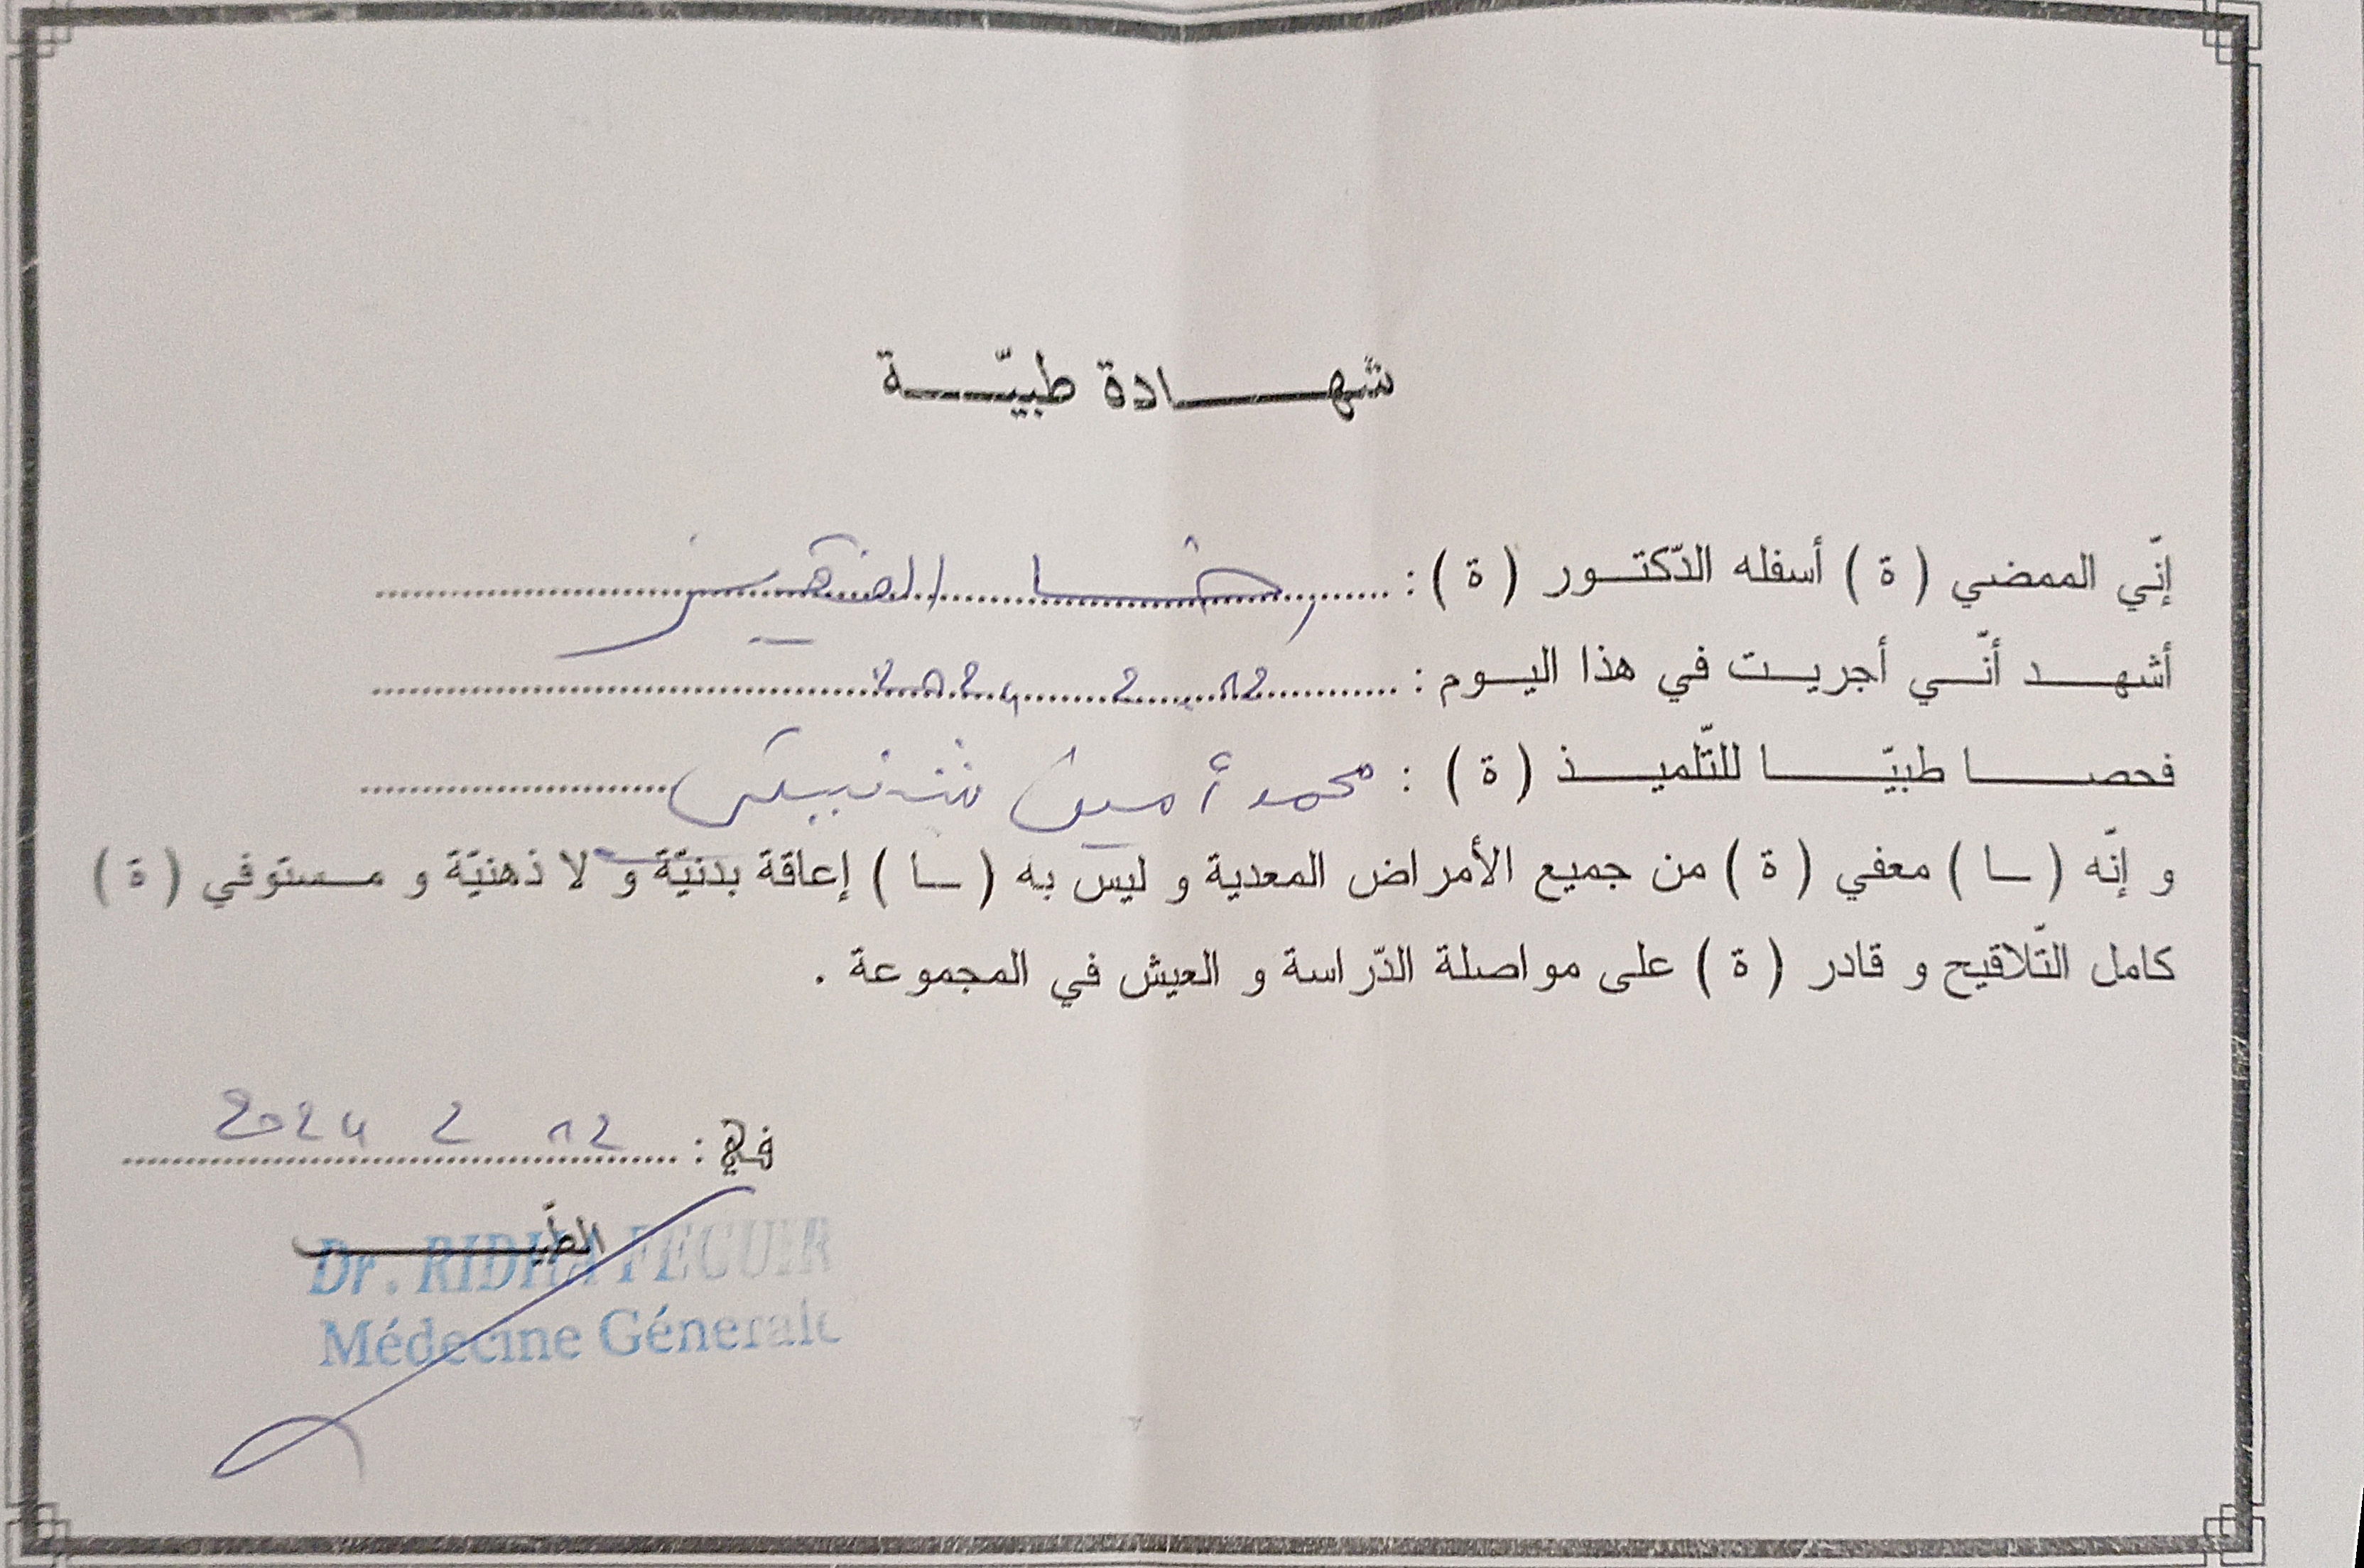 شهادة طبيّة
إنّي الممضي ( ة ) أسفله الدّكتور ( ة ) : رضا الفقير
أشهد أنّي أجريت في هذا اليوم : 12 2 2024
فحصا طبيّا للتّلميذ ( ة ) : محمد أمين
و إنّه ( ـا ) معفي ( ة ) من جميع الأمراض المعدية و ليس به ( ـا ) إعاقة بدنيّة و لا ذهنيّة و مستوفي ( ة )
كامل التّلاقيح و قادر ( ة ) على مواصلة الدّراسة و العيش في المجموعة .
في : 12 2 2024
الطّبيب
Dr. RIDHA FECUIR
Médecine Génerale